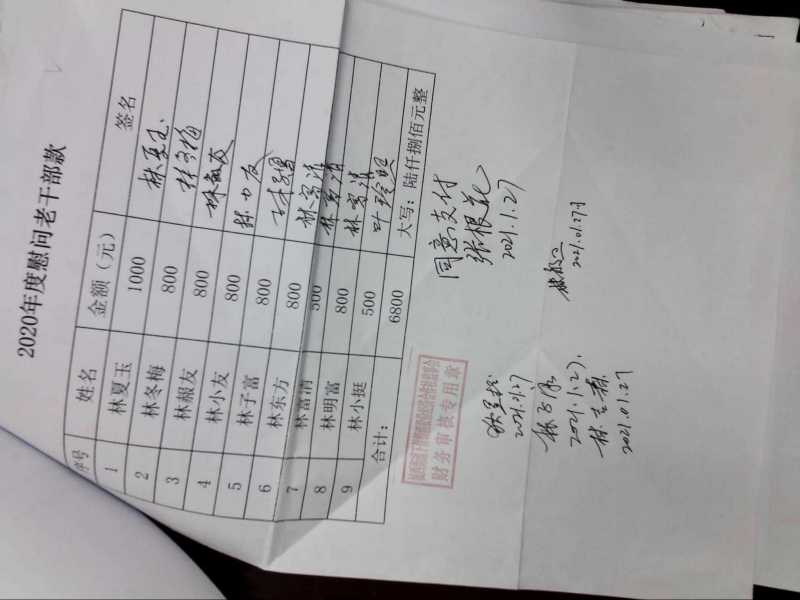 2020年度慰问老干部款
序号 姓名 金额（元） 签名
1 林夏玉 1000 林夏玉
2 林冬梅 800 林冬梅
3 林赧友 800 林赧友
4 林小友 800 林小友
5 林子富 800
6 林东方 800 林富清
7 林富清 500 林富清
8 林明富 800 林富清
9 林小挺 500 叶玲照
合计： 6800 大写：陆仟捌佰元整
同意支付
张根花
2021.1.27
财务审核专用章
2021.1.27
2021.1.27.
2021.01.27
2021.01.27